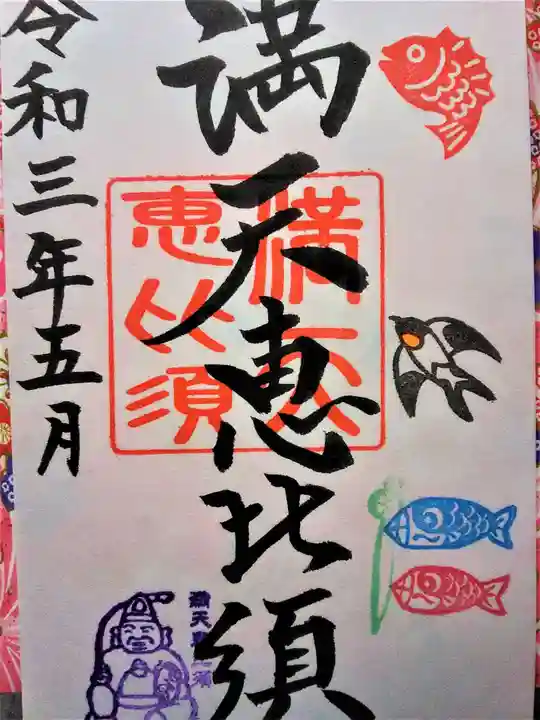 満天恵比須
満天
恵比須
令和三年五月
満天恵比須